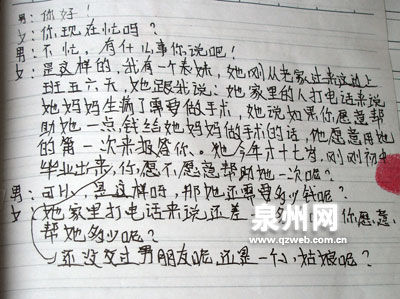 男：你好！
女：你现在忙吗？
男：不忙，有什么事你说吧！
女：是这样的，我有一个表妹，她刚从老家过来这边上
班五六天，她跟我说：她家里的人打电话来说
她妈妈生病了需要做手术，她说如果你愿意帮
助她一点钱给她妈妈做手术的话，她愿意用她
的第一次来报答你。她今年才十七岁，刚刚初中
毕业出来，你愿不愿意帮助她一次呢？
男：是这样呀，那她还需要多少钱呢？
女 她家里打电话来说还差 你愿意
帮她多少呢？
还没交过男朋友呢，还是一个小姑娘呢？
泉州网
www.qzweb.com.cn